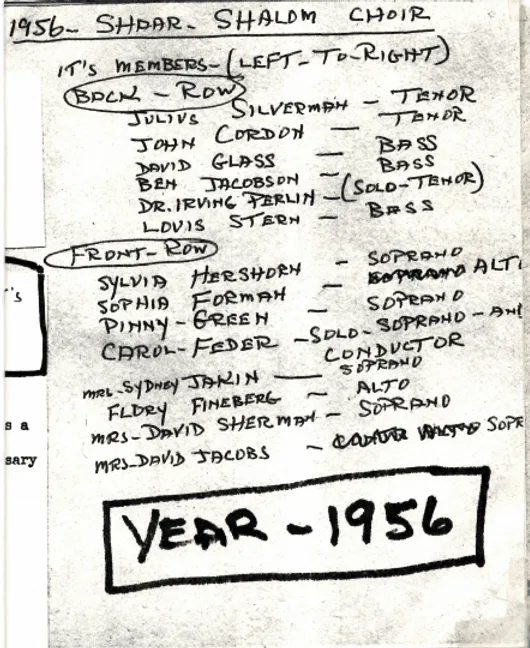 1956- SHAAR- SHALOM CHOIR
IT'S MEMBERS-(LEFT-TO-RIGHT)
BACK - ROW
JULIUS SILVERMAN - TENOR
JOHN CORDON - TENOR
DAVID GLASS - BASS
BEN JACOBSON - BASS
DR. IRVING PERLIN - (SOLO-TENOR)
LOUIS STERN - BASS
FRONT-ROW
SYLVIA HERSHORN - SOPRANO
SOPHIA FORMAN - ALT
PINNY-GREEN - SOPRANO
CAROL-FEDER -SOLO-SOPRANO-AN
CONDUCTOR
MRS. SYDNEY JAKIN - SOPRANO
FLORY FINEBERG - ALTO
MRS-DAVID SHERMAN - SOPRANO
MRS-DAVID JACOBS - SOPR
YEAR - 1956
's
s a
sary